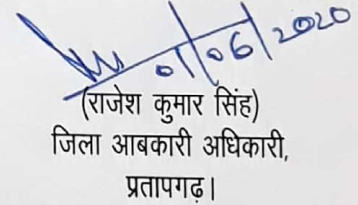 01/06/2020
(राजेश कुमार सिंह)
जिला आबकारी अधिकारी,
प्रतापगढ़।